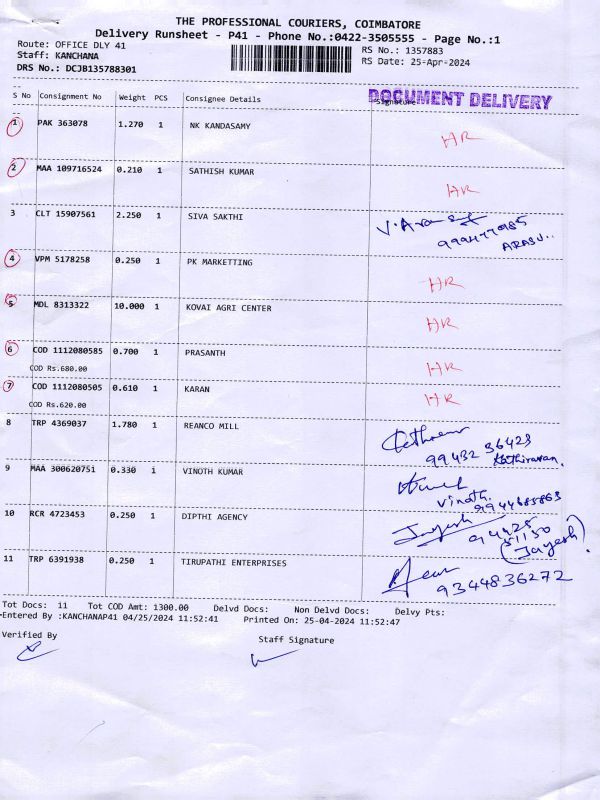 THE PROFESSIONAL COURIERS, COIMBATORE
Delivery Runsheet - P41 - Phone No.:0422-3505555 - Page No.:1
Route: OFFICE DLY 41 RS No.: 1357883
Staff: KANCHANA RS Date: 25-Apr-2024
DRS No.: DCJB135788301
S No Consignment No Weight PCS Consignee Details Signature DOCUMENT DELIVERY
1 PAK 363078 1.270 1 NK KANDASAMY HR
2 MAA 109716524 0.210 1 SATHISH KUMAR HR
3 CLT 15907561 2.250 1 SIVA SAKTHI
ARASU..
4 VPM 5178258 0.250 1 PK MARKETTING HR
5 MDL 8313322 10.000 1 KOVAI AGRI CENTER HR
6 COD 1112080585 0.700 1 PRASANTH HR
COD Rs.680.00
7 COD 1112080505 0.610 1 KARAN HR
COD Rs.620.00
8 TRP 4369037 1.780 1 REANCO MILL
99432 36423
Kathiravan.
9 MAA 300620751 0.330 1 VINOTH KUMAR
Vinoth.
9944685863
10 RCR 4723453 0.250 1 DIPTHI AGENCY Jayesh
94425
51150
(Jayesh)
11 TRP 6391938 0.250 1 TIRUPATHI ENTERPRISES
9344836272
Tot Docs: 11 Tot COD Amt: 1300.00 Delvd Docs: Non Delvd Docs: Delvy Pts:
Entered By :KANCHANAP41 04/25/2024 11:52:41 Printed On: 25-04-2024 11:52:47
Verified By Staff Signature